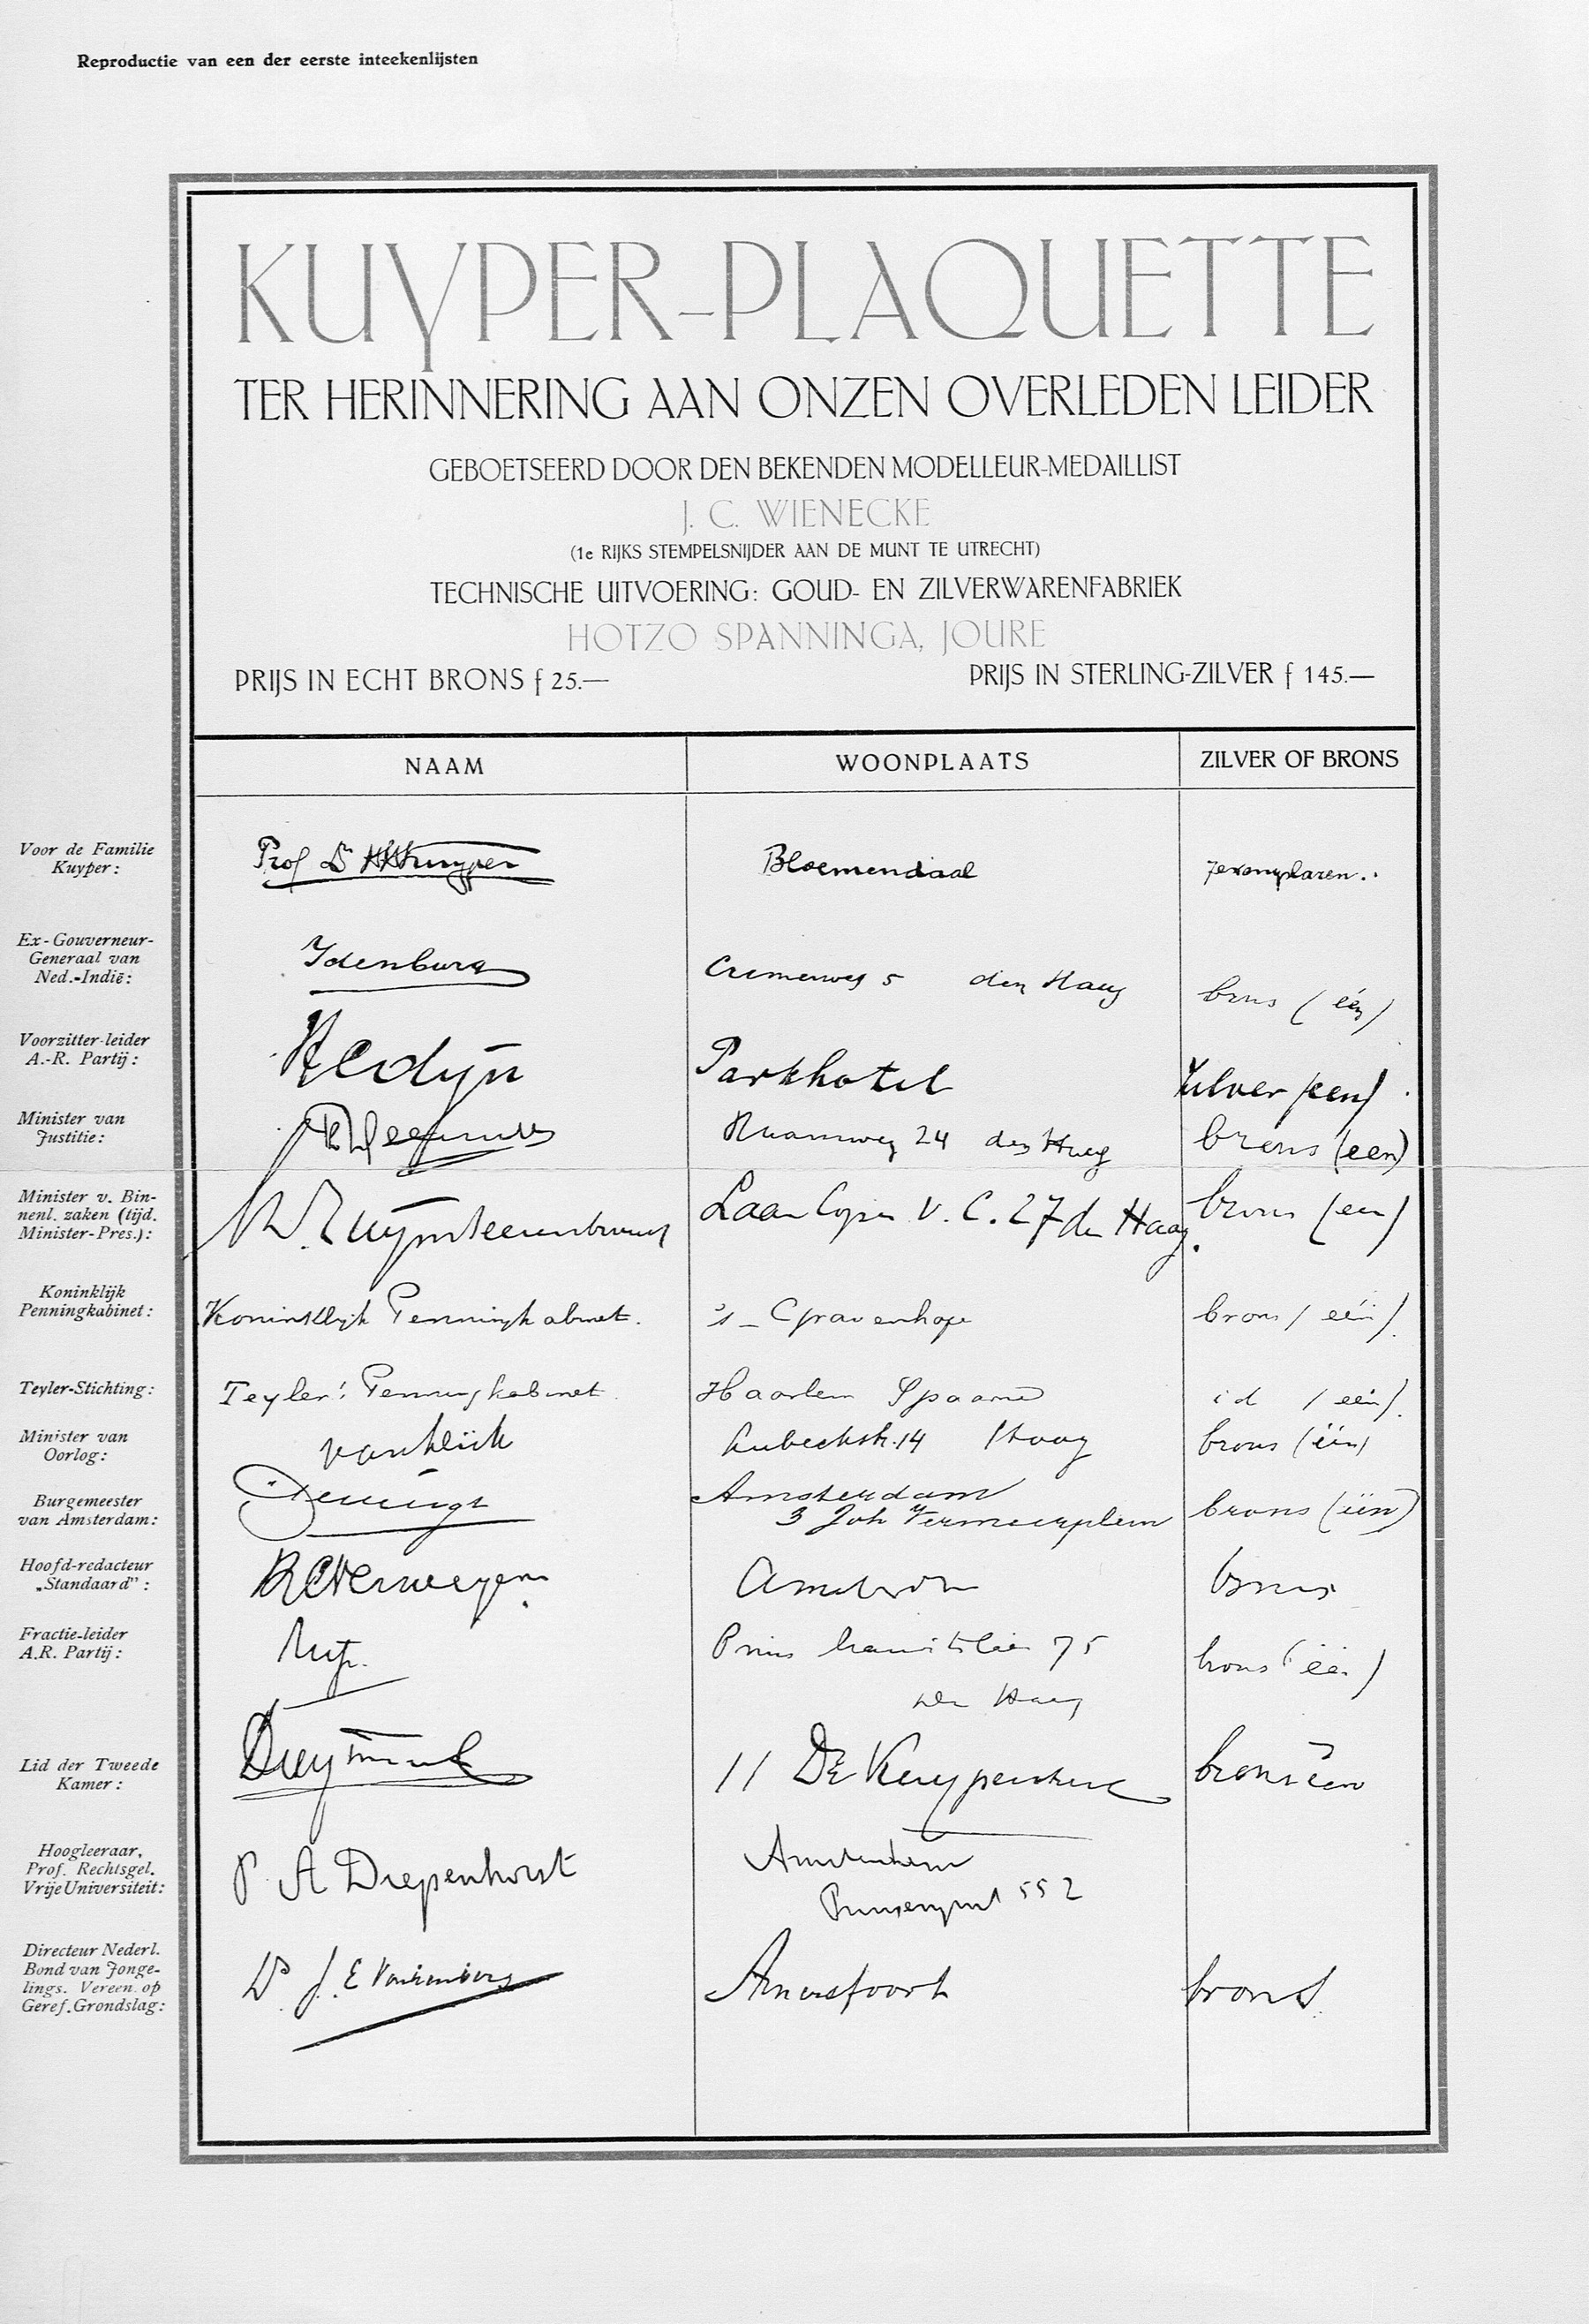 Reproductie van een der eerste inteekenlijsten
KUYPER-PLAQUETTE
TER HERINNERING AAN ONZEN OVERLEDEN LEIDER
GEBOETSEERD DOOR DEN BEKENDEN MODELLEUR-MEDAILLIST
J. C. WIENECKE
(1e RIJKS STEMPELSNIJDER AAN DE MUNT TE UTRECHT)
TECHNISCHE UITVOERING: GOUD- EN ZILVERWARENFABRIEK
HOTZO SPANNINGA, JOURE
PRIJS IN ECHT BRONS f 25.— PRIJS IN STERLING-ZILVER f 145.—
NAAM WOONPLAATS ZILVER OF BRONS
Voor de Familie
Kuyper:
Prof Dr HHKuyper Bloemendaal 7 exemplaren.
Ex-Gouverneur-
Generaal van
Ned.-Indië:
Idenburg Cremerweg 5 den Haag brons (één)
Voorzitter-leider
A.-R. Partij:
HColijn Parkhotel Zilver (een)
Minister van
Justitie:
Heemskerk 24 den Haag brons (een)
Minister v. Bin-
nenl. zaken (tijd.
Minister-Pres.):
Ruijs de Beerenbrouck Laan Copes v. C. 27 den Haag. brons (een)
Koninklijk
Penningkabinet:
Koninklijk Penningkabinet. 's-Gravenhage brons (één).
Teyler-Stichting:
Teyler's Penningkabinet. Haarlem Spaarne id (één).
Minister van
Oorlog:
van Dijk Lubeckstr. 14 Haag brons (één)
Burgemeester
van Amsterdam:
Amsterdam
3 Joh Vermeerplein brons (één)
Hoofd-redacteur
„Standaard":
RCVerweyen. Amsterdam brons
Fractie-leider
A.R. Partij:
Prins Mauritslaan 75 brons (één)
den Haag
Lid der Tweede
Kamer:
Duymaer 11 Dr Kuyperstraat brons één
Hoogleeraar,
Prof. Rechtsgel.
Vrije Universiteit:
P. A Diepenhorst Amsterdam
Prinsengracht 552
Directeur Nederl.
Bond van Jonge-
lings. Vereen. op
Geref. Grondslag:
Dr. J. E. Vonkenberg Amersfoort brons.